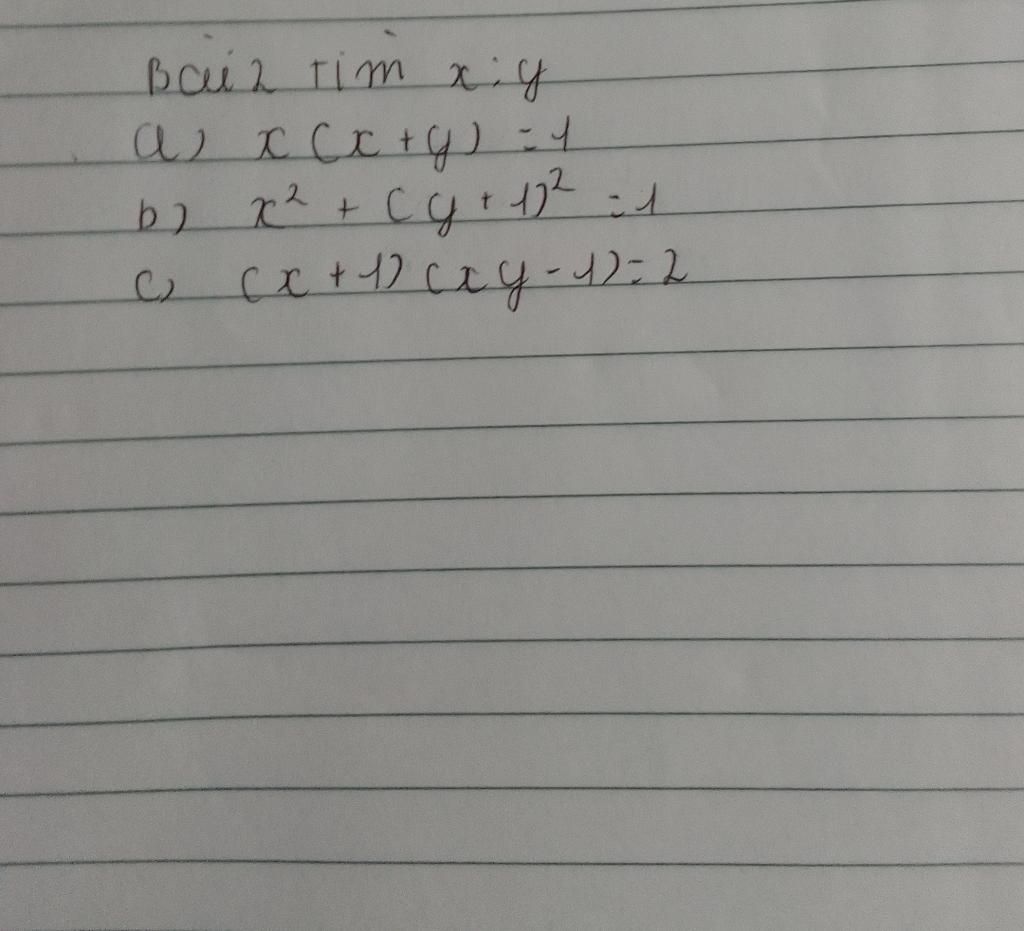 Bài 2 Tìm x; y
a) x (x + y) = 1
b) x² + (y + 1)² = 1
c) (x + 1) (xy - 1) = 2